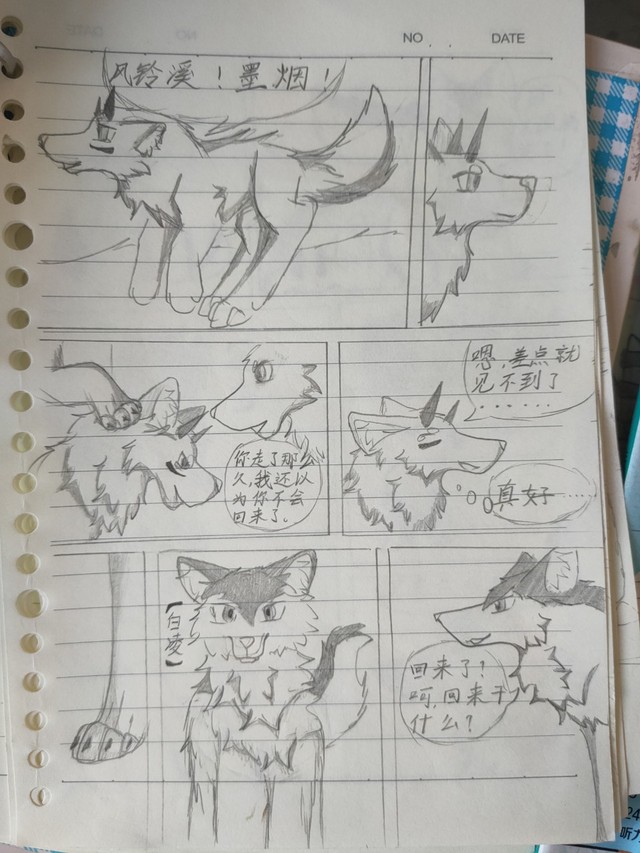 NO. . .
DATE
风铃溪！墨烟！
你走了那么
久，我还以
为你不会
回来了。
嗯，差点就
见不到了
......
真好......
【白凌】
回来了？
呵，回来干
什么？
24
听力